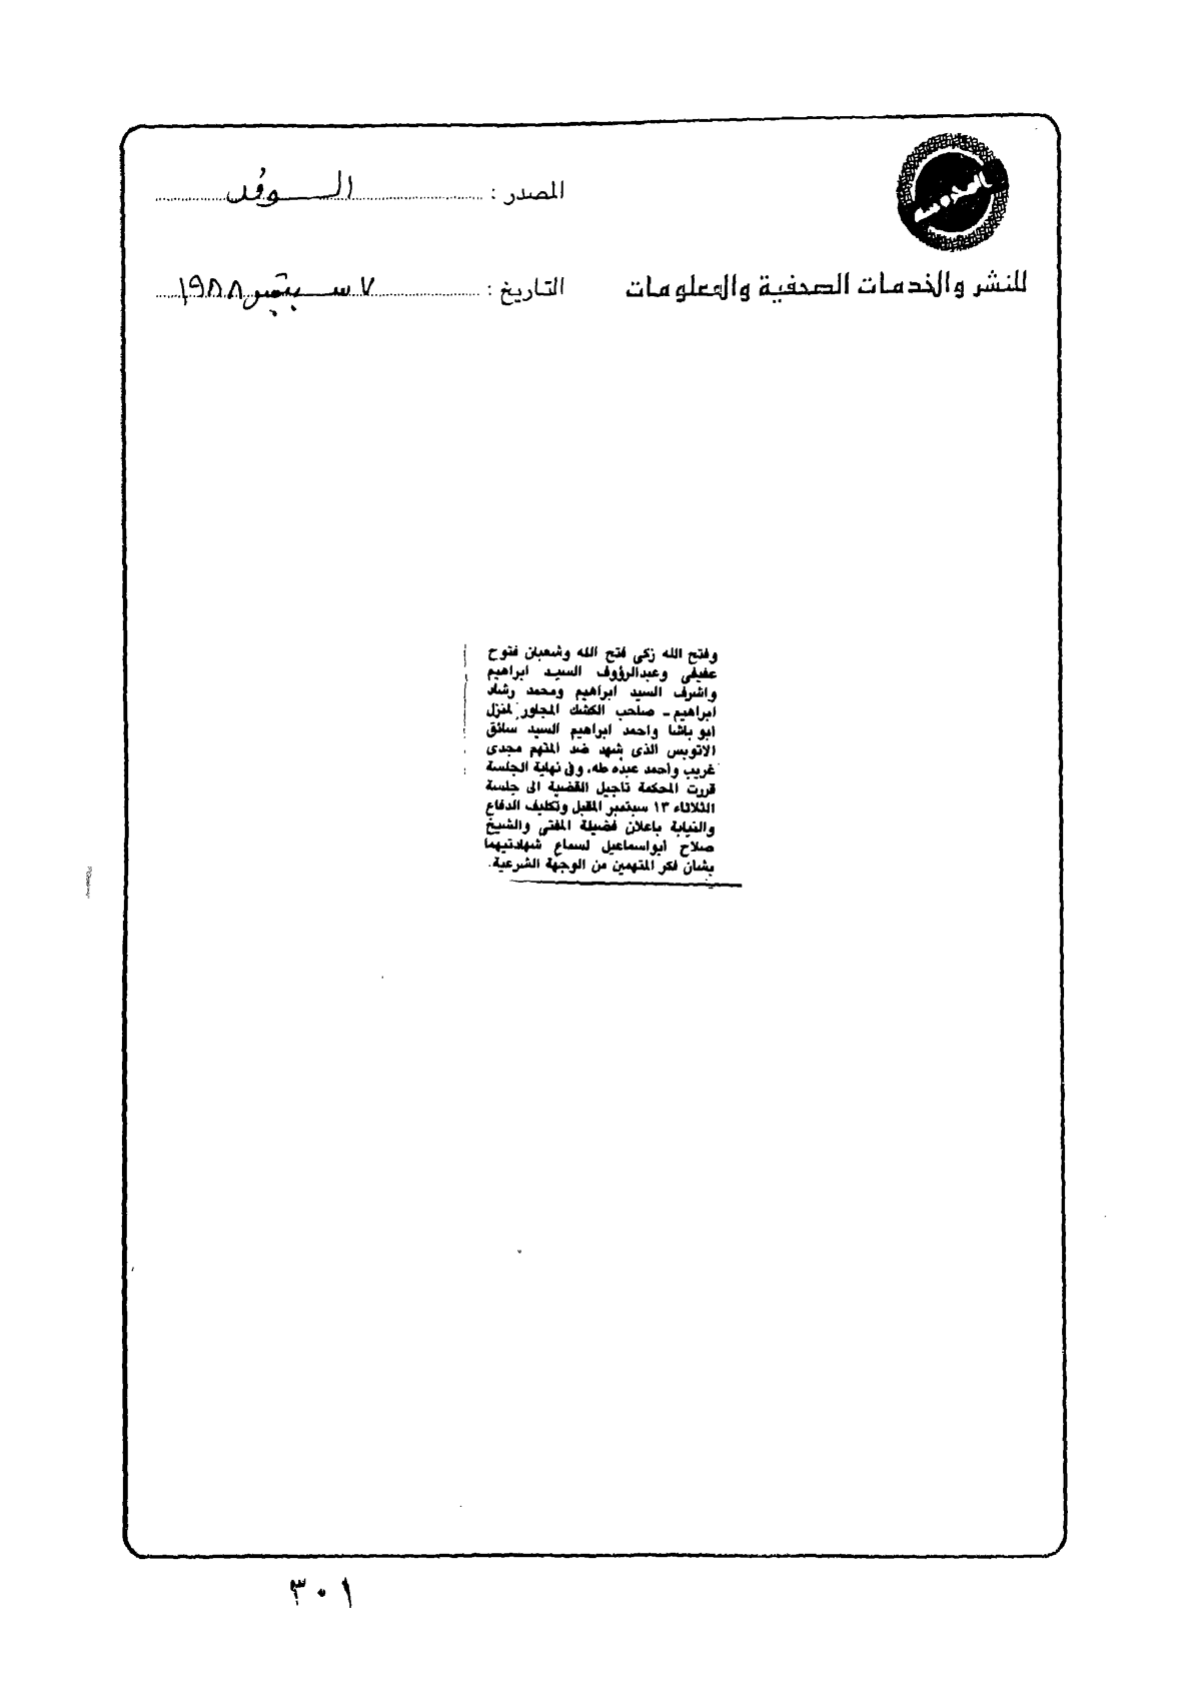 المصدر : الوفد
للنشر والخدمات الصحفية والمعلومات
التاريخ : ٧ سبتمبر ١٩٨٨
وفتح الله زكى فتح الله وشعبان فتوح
عفيفى وعبدالرؤوف السيد ابراهيم
واشرف السيد ابراهيم ومحمد رشاد
ابراهيم ـ صاحب الكشك المجاور لمنزل
ابو باشا واحمد ابراهيم السيد سائق
الاتوبيس الذى شهد ضد المتهم مجدى
غريب وأحمد عبده طه، وفى نهاية الجلسة
قررت المحكمة تاجيل القضية الى جلسة
الثلاثاء ١٣ سبتمبر المقبل وتكليف الدفاع
والنيابة باعلان فضيلة المفتى والشيخ
صلاح أبواسماعيل لسماع شهادتيهما
بشان فكر المتهمين من الوجهة الشرعية.
٣٠١